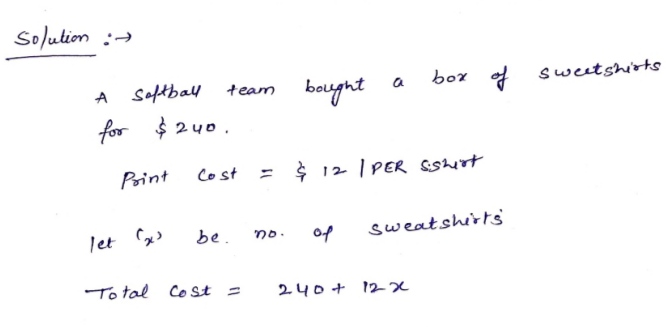 Solution :→
A softball team bought a box of sweetshirts
for $240.
Print cost = $ 12 | PER S.Shirt
let (x) be. no. of sweatshirts
Total cost = 240 + 12x